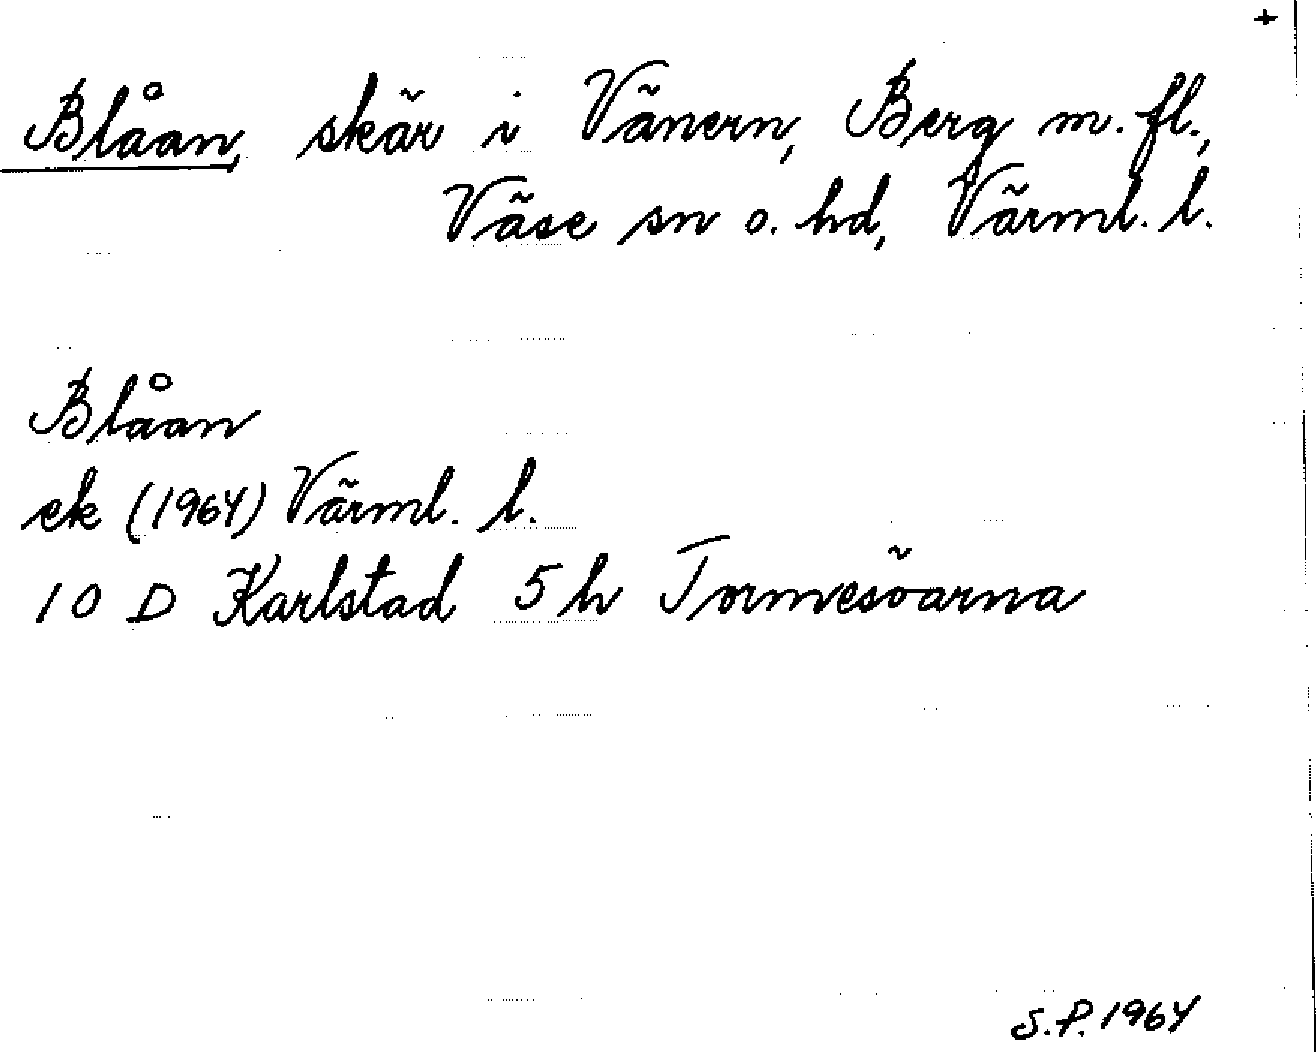 +
Blåan, skär i Vänern, Berg m. fl.,
Väse sn o. hd, Värml. l.
Blåan
ek (1964) Värml. l.
10 D Karlstad 5 h Tormesöarna
S.P. 1964